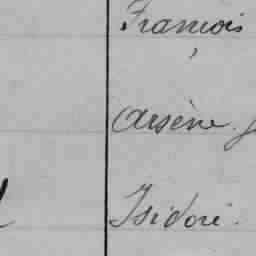 François
Arsène
Isidore